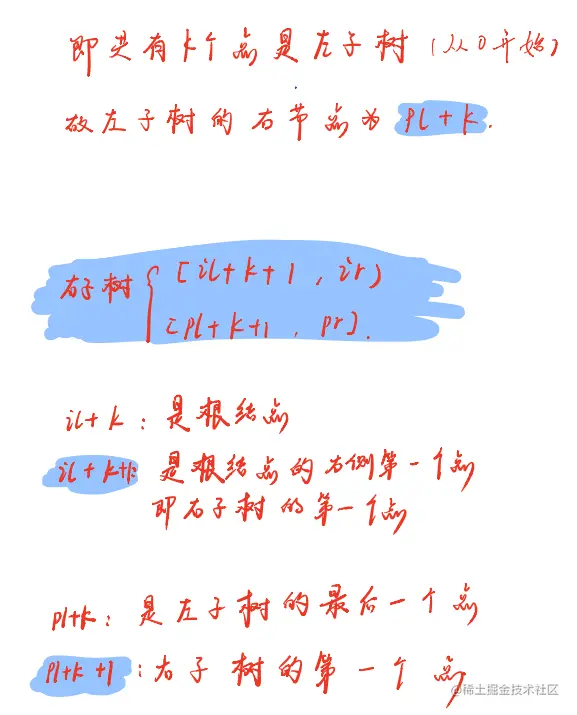 即共有k个点是左子树(从0开始)
故左子树的右节点为 pl+k.
右子树{
[il+k+1, ir)
[pl+k+1, pr].
il+k:是根结点
il+k+1:是根结点的右侧第一个点
即右子树的第一个点
pl+k:是左子树的最后一个点
pl+k+1:右子树的第一个点
@稀土掘金技术社区